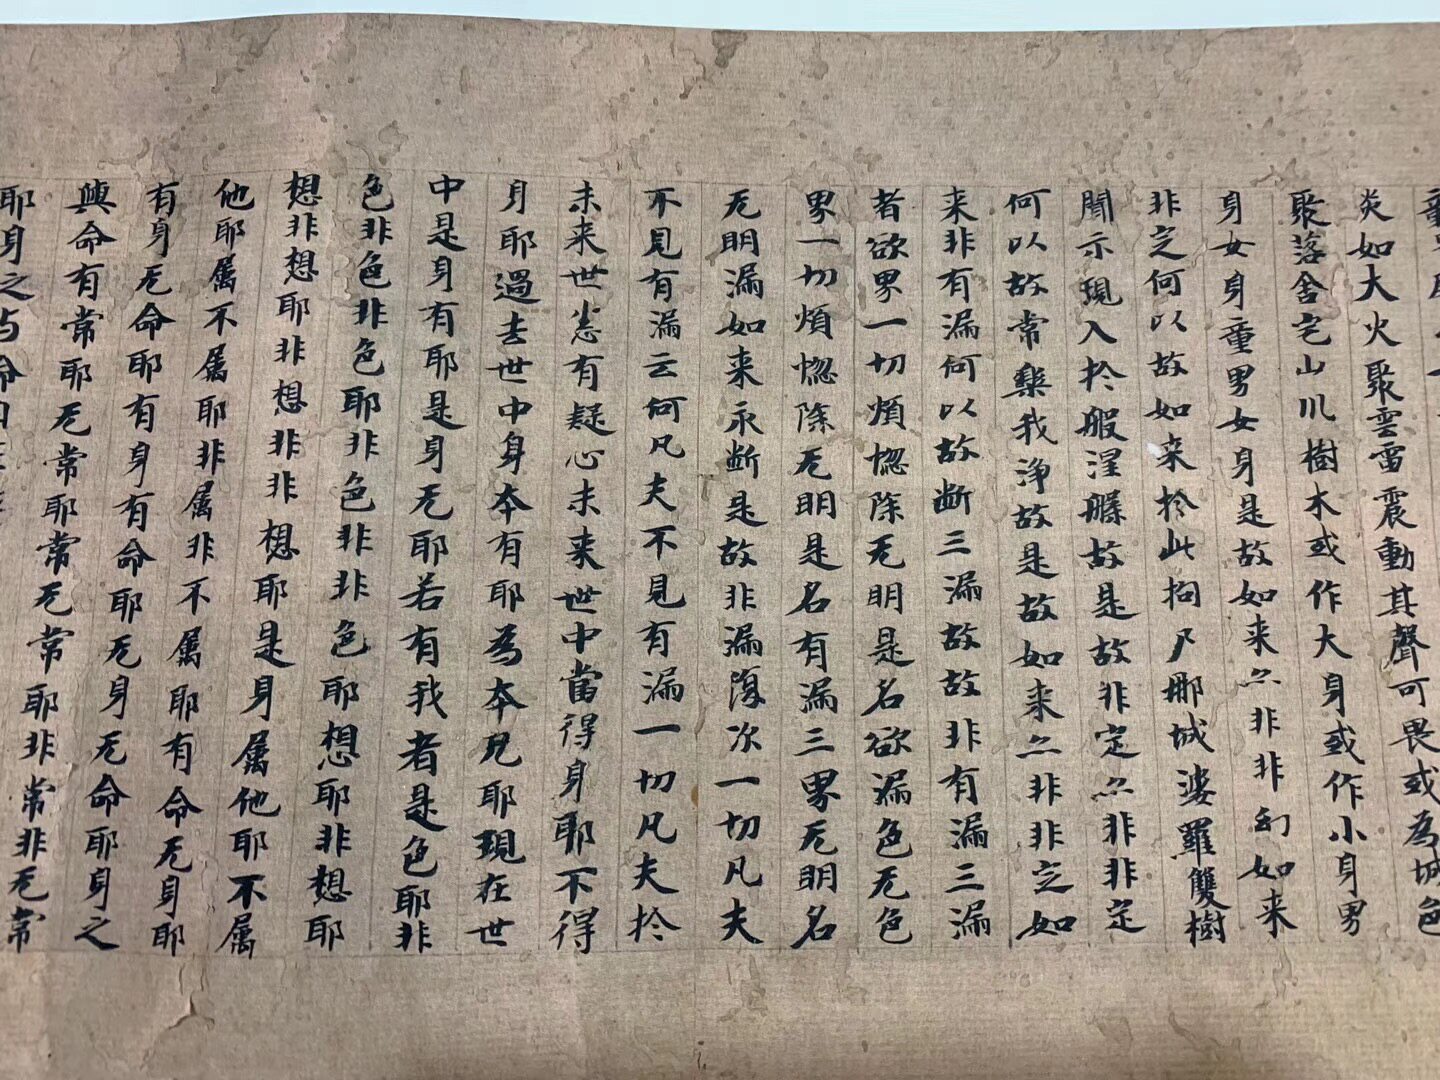 炎如大火聚雲雷震動其聲可畏或為城色
聚落舍宅山川樹木或作大身或作小身男
身女身童男女身是故如来亦非非幻如来
非定何以故如来於此拘尸那城娑羅雙樹
間示現入於般涅槃故是故非定亦非非定
何以故常樂我淨故是故如来亦非非定如
来非有漏何以故断三漏故故非有漏三漏
者欲界一切煩惱除无明是名欲漏色无色
界一切煩惱除无明是名有漏三界无明名
无明漏如来永断是故非漏復次一切凡夫
不見有漏云何凡夫不見有漏一切凡夫於
未来世悉有疑心未来世中當得身耶不得
身耶過去世中身本有耶為本无耶現在世
中是身有耶是身无耶若有我者是色耶非
色非色非色耶非色非非色耶想耶非想耶
想非想耶非想非非想耶是身屬他耶不属
他耶属不属耶非属非不属耶有命无身耶
有身无命耶有身有命耶无身无命耶身之
與命有常耶无常耶常无常耶非常非无常
耶身之与命